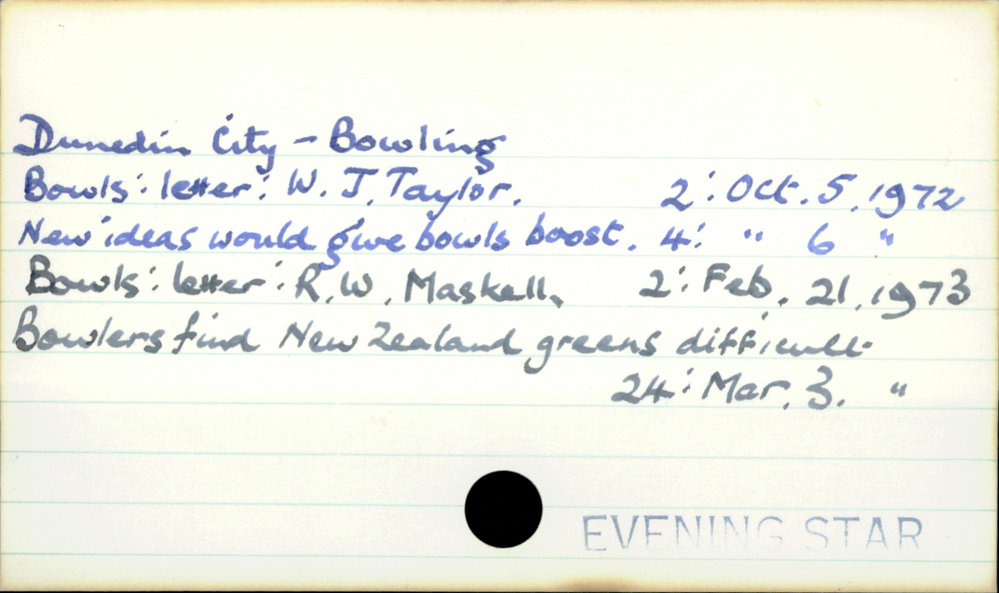 Dunedin City - Bowling
Bowls: letter: W. J. Taylor. 2: Oct. 5. 1972
New ideas would give bowls boost. 4: " 6 "
Bowls: letter: R. W. Maskell. 2: Feb. 21. 1973
Bowlers find New Zealand greens difficult
24: Mar. 3. "
EVENING STAR